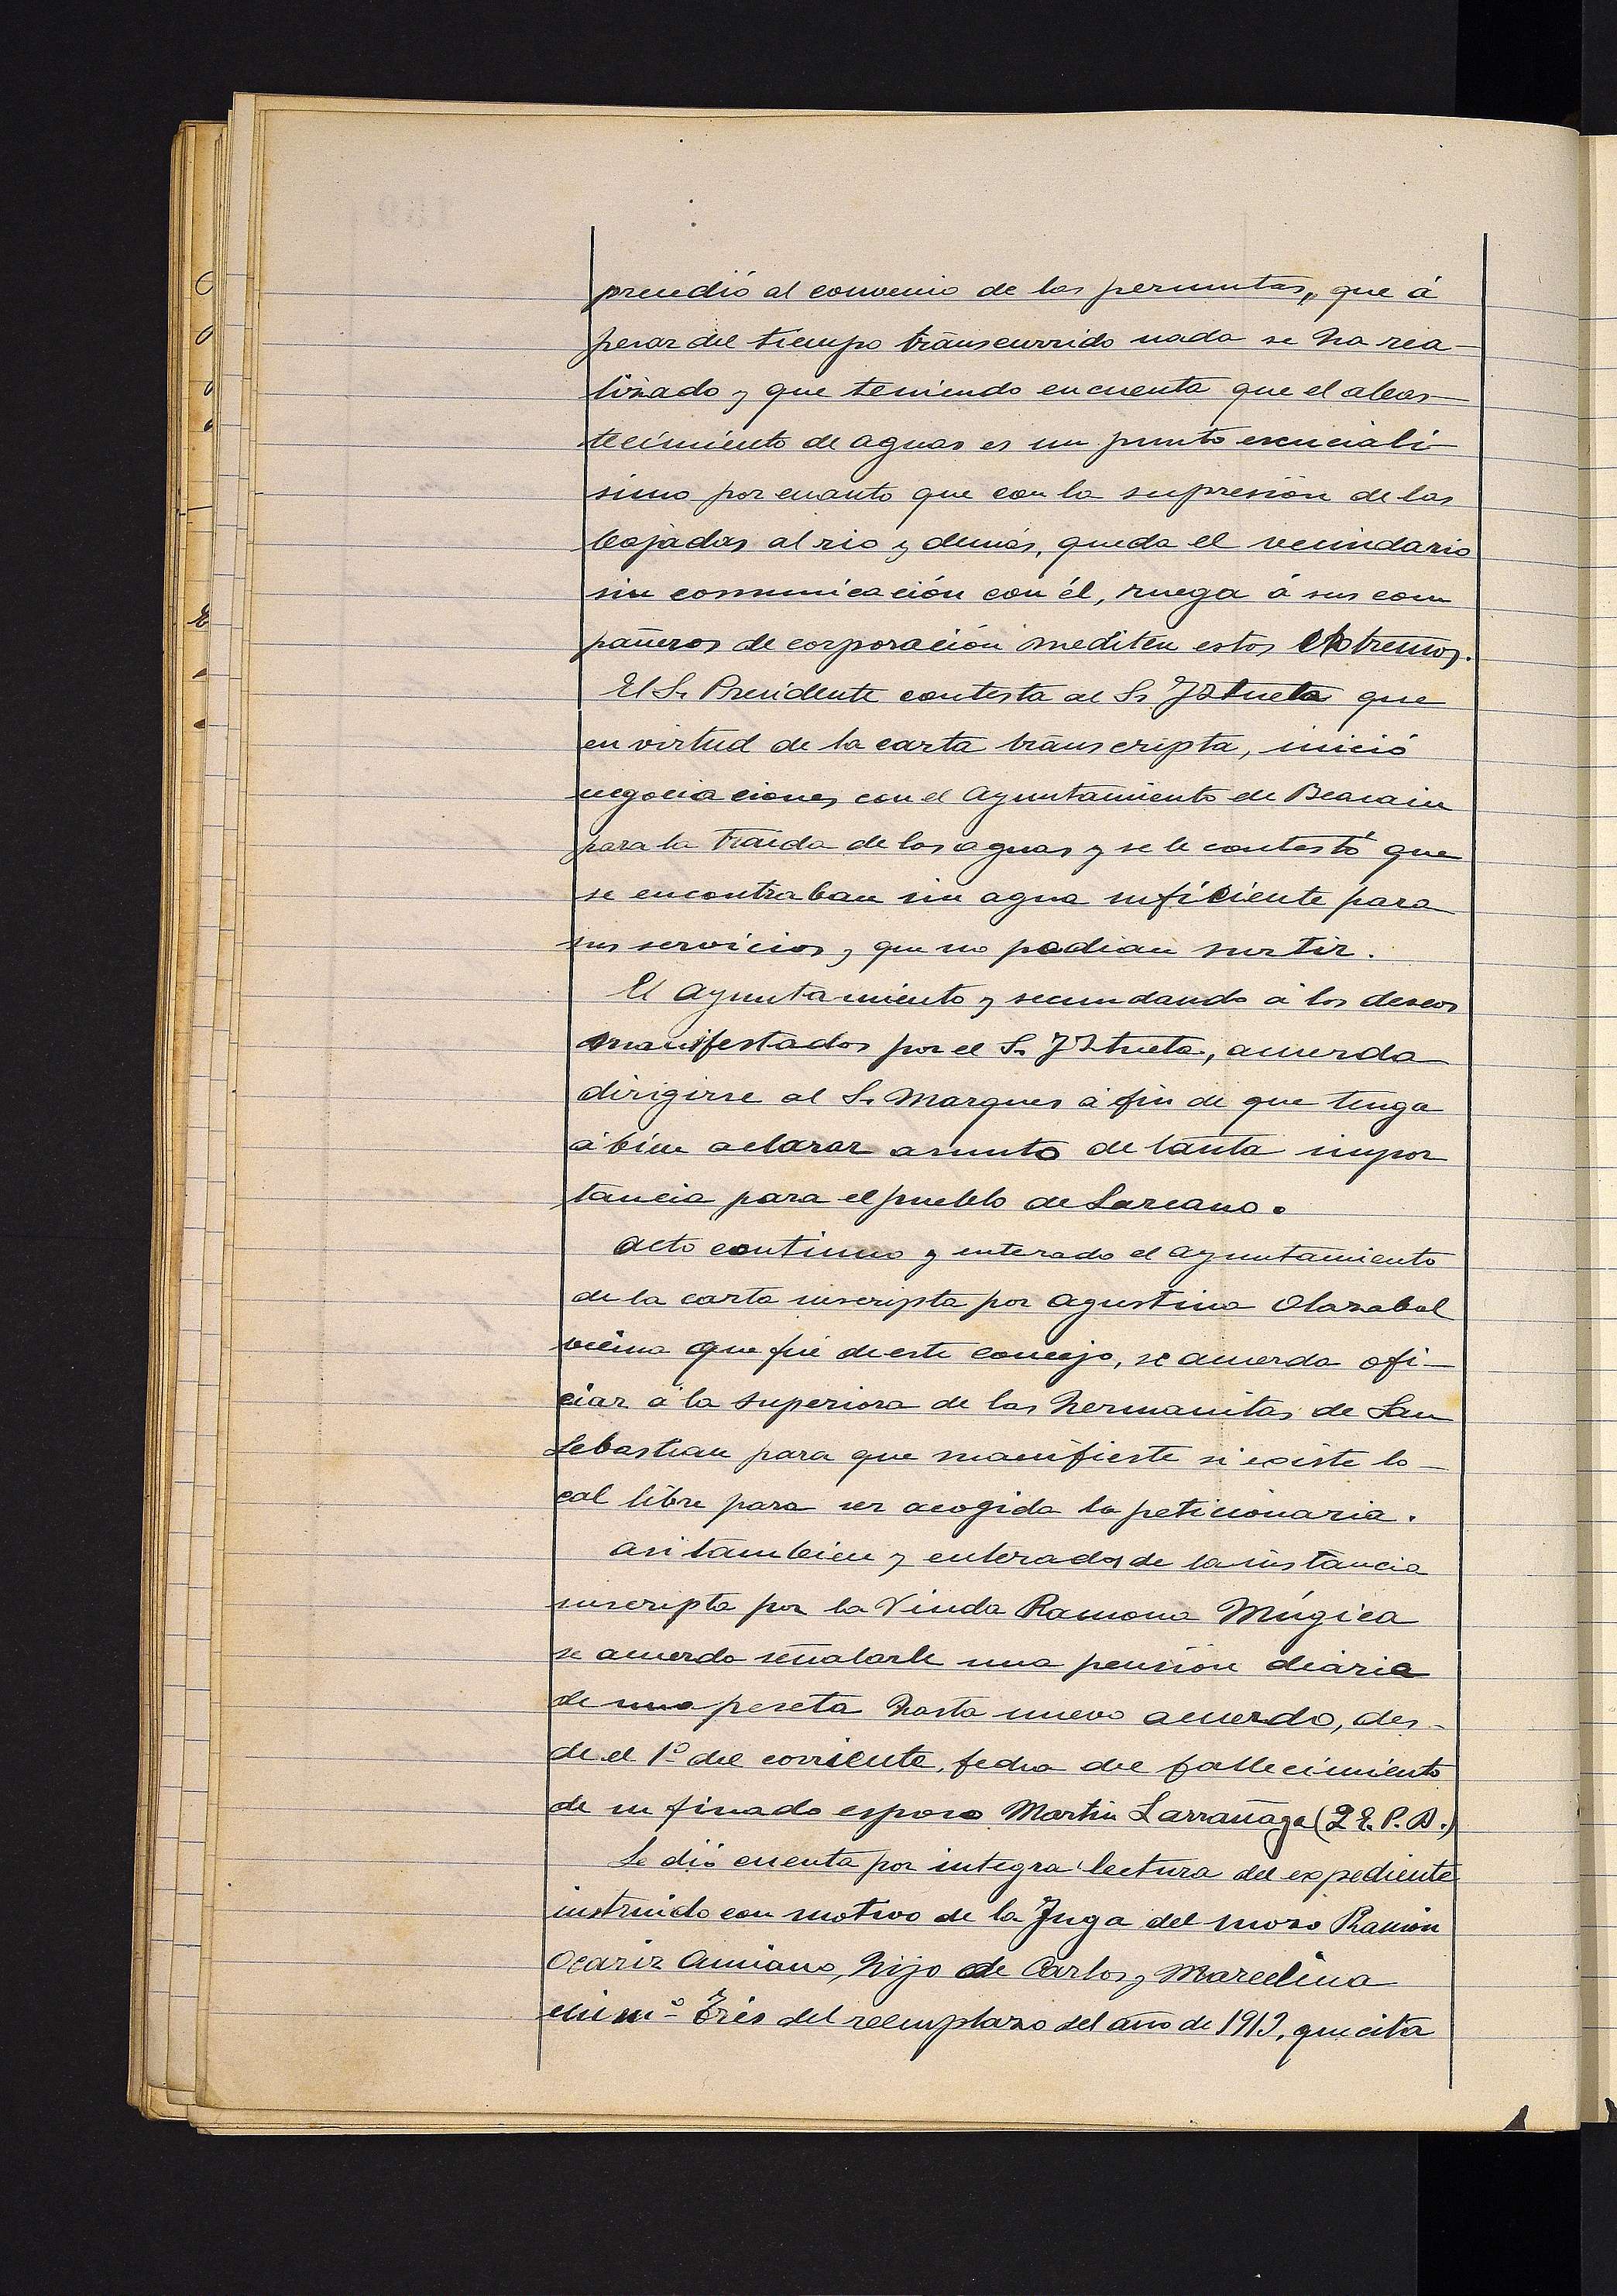 precedió al convenio de las permutas, que á
pesar del tiempo transcurrido nada se ha rea-
lizado y que teniendo en cuenta que el abas-
tecimiento de aguas es un punto esenciali-
simo por cuanto que con la supresión de las
bajadas al rio y demás, queda el vecindario
sin comunicación con él, ruega á sus com
pañeros de corporación mediten estos extremos.
El Sr. Presidente contesta al Sr. Iztueta que
en virtud de la carta transcripta, inició
negociaciones con el Ayuntamiento de Beasain
para la traida de las aguas y se le contestó que
se encontraban sin agua suficiente para
sus servicios y que no podian surtir.
El Ayuntamiento y secundando á los deseos
manifestados por el Sr. Iztueta, acuerda
dirigirse al Sr. Marques á fin de que tenga
á bien aclarar asunto de tanta impor
tancia para el pueblo de Lazcano.
Acto continuo y enterado el Ayuntamiento
de la carta suscripta por Agustina Olazabal
vecina que fué de este concejo, se acuerda ofi-
ciar á la Superiora de las Hermanitas de San
Sebastian para que manifieste si existe lo-
cal libre para ser acogida la peticionaria.
Asi tambien y enterados de la instancia
suscripta por la Viuda Ramona Múgica
se acuerda señalarle una pensión diaria
de una peseta hasta nuevo acuerdo, des-
de el 1º del corriente, fecha del fallecimiento
de su finado esposo Martin Larrañaga (Q.E.P.D.)
Se dió cuenta por integra lectura del expediente
instruido con motivo de la fuga del mozo Ramón
Ocariz Amiano, hijo de Carlos y Marcelina
nº Tres del reemplazo del año de 1913, que cita